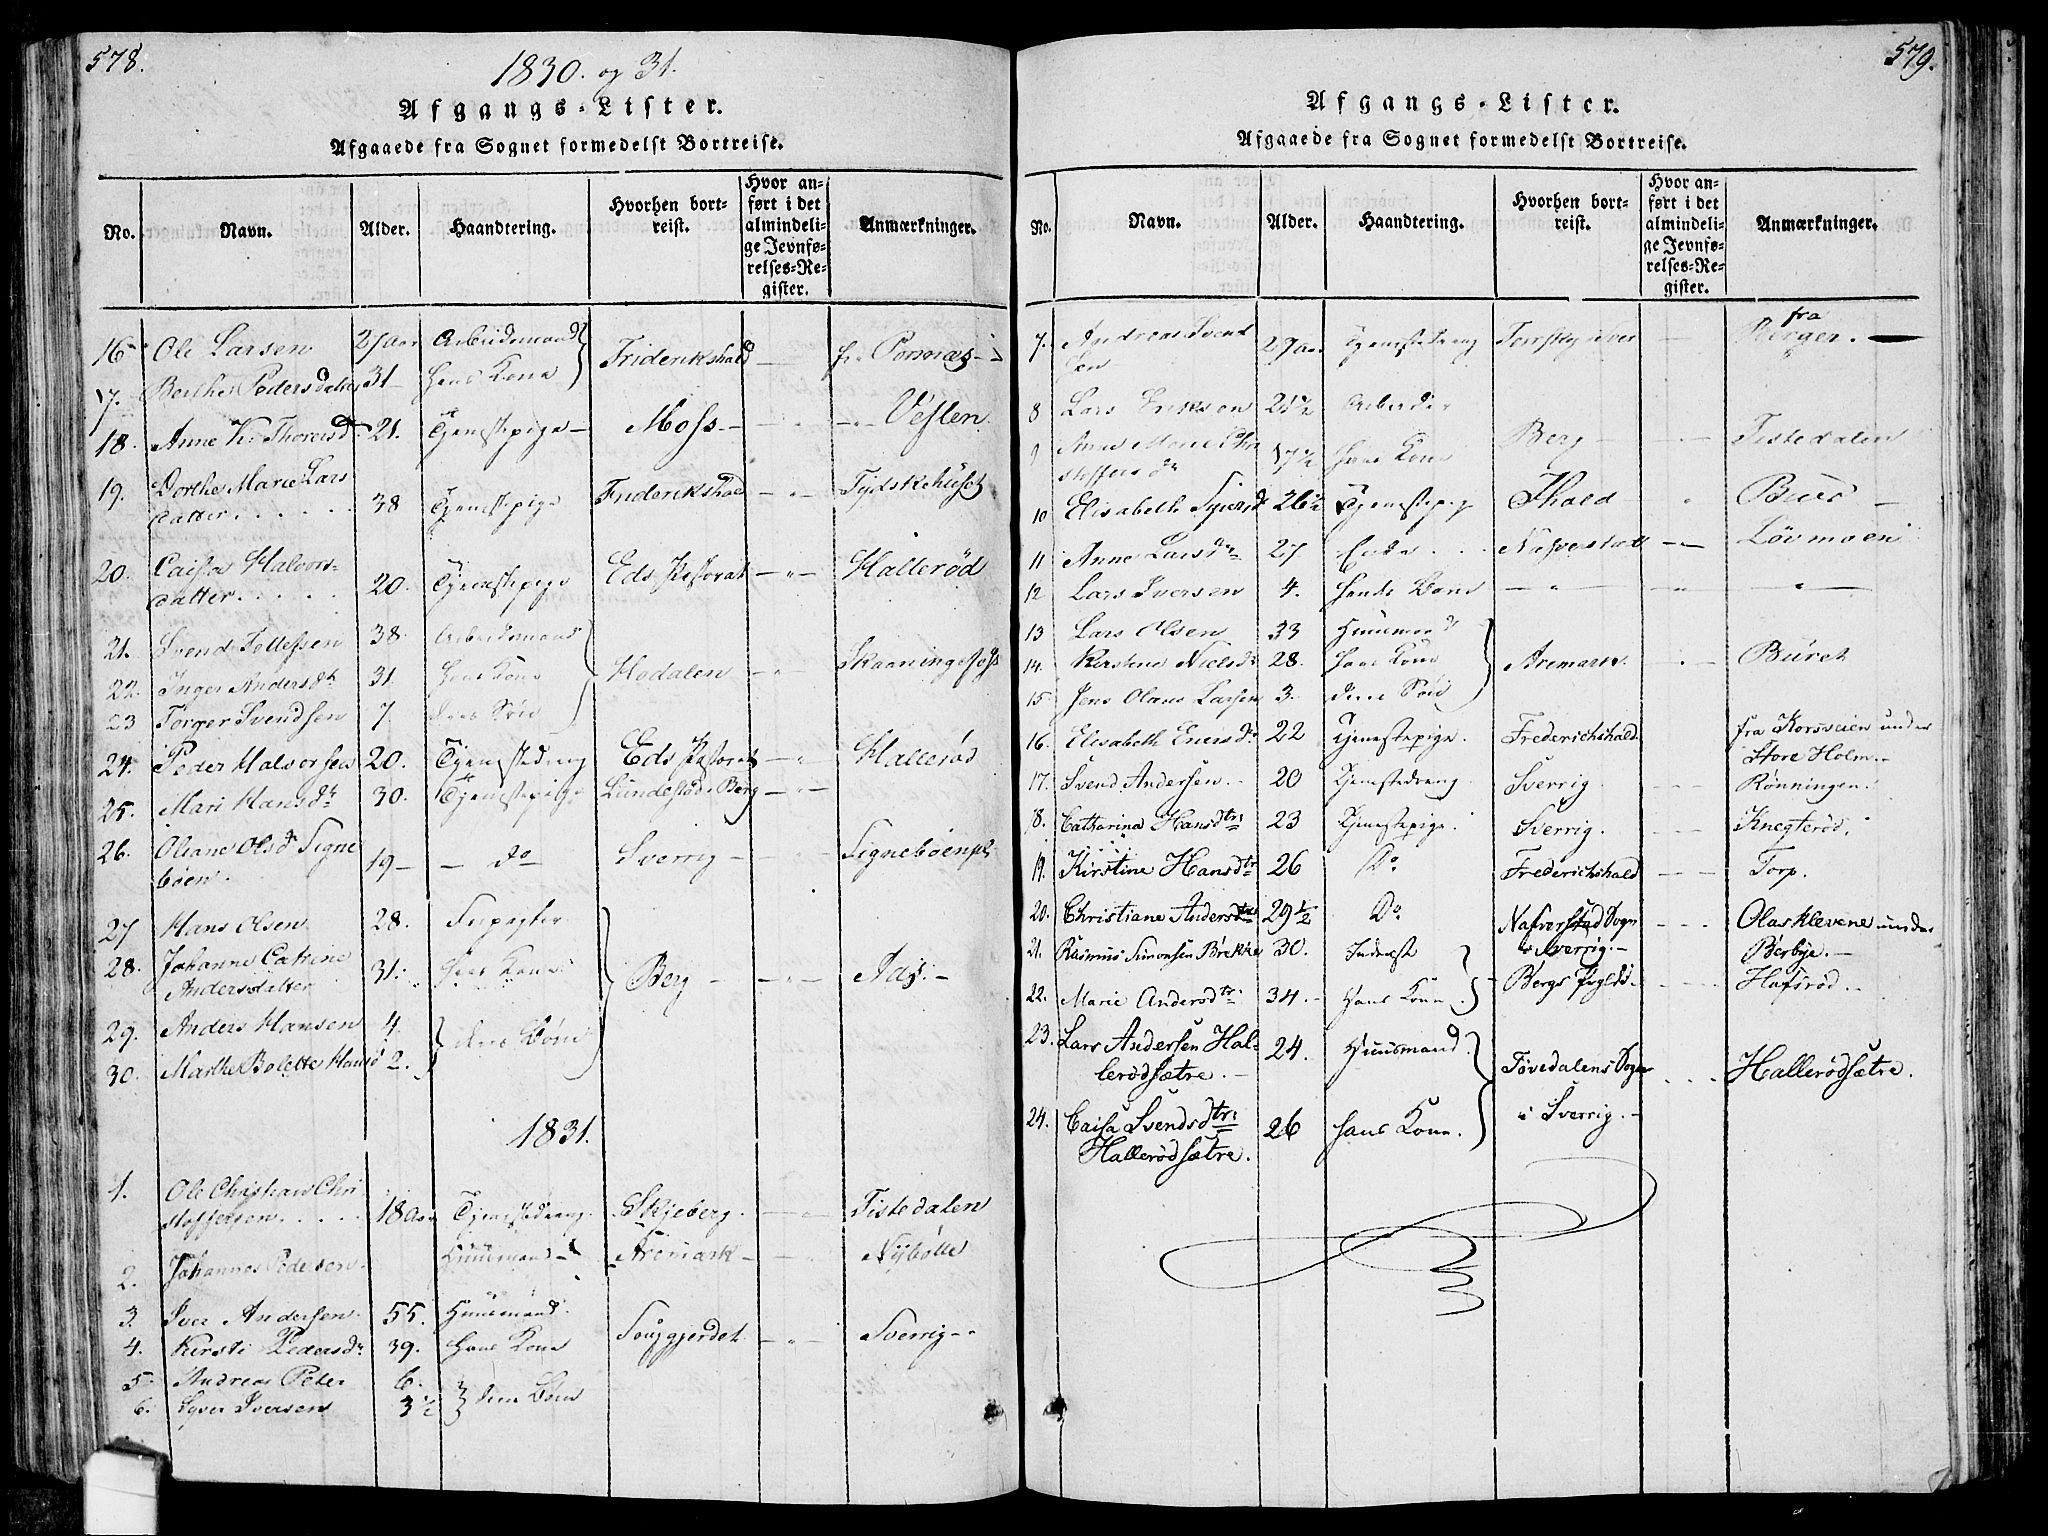 578.
1830. og 31.
Afgangs-Lister.
Afgaaede fra Sognet formedelst Bortreise.
No. Navn. Alder. Haandtering. Hvorhen bortreist. Hvor anført i det almindelige Jevnførelses-Register. Anmærkninger.
16 Ole Larsen 27 Aar Arbeidsmand
17. Berthe Pedersdatter 31 hans Kone Friderikshald
18. Anne K. Thoresd 21. Tjenestepige Moss Veslen
19. Dorthe Marie Lars
datter 38 Tjenestepige Friderikshald Tydskehuset
20. Caisa Halvors-
datter 20. Tjenestepige Eds Pastorat Hallerød
21. Svend Tollefsen 38. Arbeidsmand
22. Inger Andersdtr 31. hans Kone Hodalen
23 Torger Svendsen 7. deres Søn
24. Peder Halvorsen 20. Tjenestedreng Eds Pastorat Hallerød
25. Mari Hansdtr 30. Tjenestepige Lundestad i Berg
26. Oliane Olsd Signe
bøen. 19 do Sverrig Signebøenpl
27 Hans Olsen 28.
28. Johanne Catrine
Andersdatter 31. hans Kone Berg
29. Anders Hansen 4.
30. Marthe Bolette Hansd 2. deres Børn
1831.
1. Ole Christian Chri
stoffersen 18 Aar Tjenestedreng Skjeberg. Tistedalen
2. Johannes Pedersen Huusmand Aremark Nybølle
3. Iver Andersen 55. Huusmand
4. Kirsti Pedersdr 39. hans Kone Sverrig
5. Andreas Peter 6.
6. Syver Iversen 3½ deres Børn
579.
Afgangs-Lister.
Afgaaede fra Sognet formedelst Bortreise.
No. Navn. Alder. Haandtering. Hvorhen bortreist. Hvor anført i det almindelige Jevnførelses-Register. Anmærkninger.
7. Andreas Svend
sen 27 Aar Tjenestedreng fra Berger.
8 Lars Eriksen 21½ Arbeider
9 Anne Marie Chri
stoffersdr 17½ hans Kone Berg Tistedalen
10 Elisabeth Syversd 26½ Tjenestepige Fhald
11 Anne Larsdr 27 Enke Løvmoen
12 Lars Iversen 4. hendes Barn
13 Lars Olsen 33 Huusmand
14. Kirstine Nielsdr 28. hans Kone Aremark. Buret
15. Jens Olaus Larsen 3. deres Søn
16. Elisabeth Enersdr 22 Tjenestepige. Frederichshald. fra Korsveien under
Store Holm.
17. Svend Andersen. 20 Tjenestedreng. Sverrig. Rønningen.
18. Catharina Hansdtr: 23 Tjenestepige. Sverrig. Knegterød.
19. Kirstine Hansdtr 26 Do Frederichshald Torp.
20. Christiane Andersdtr 29½ Do Nafverstad Sogn
i Sverrig. Olasklevene under
Berbye.
21. Rasmus Simonsen Brekke 30. Inderst
22. Marie Andersdtr. 34. Hans Kone. Bergs Prgld. Hafsrød.
23. Lars Andersen Hal-
lerødsætre. 24. Huusmand. Tøvedalens Sogn Hallerødsætre.
24. Caisa Svendsdtr:
Hallerødsætre. 26 hans Kone. i Sverrig.